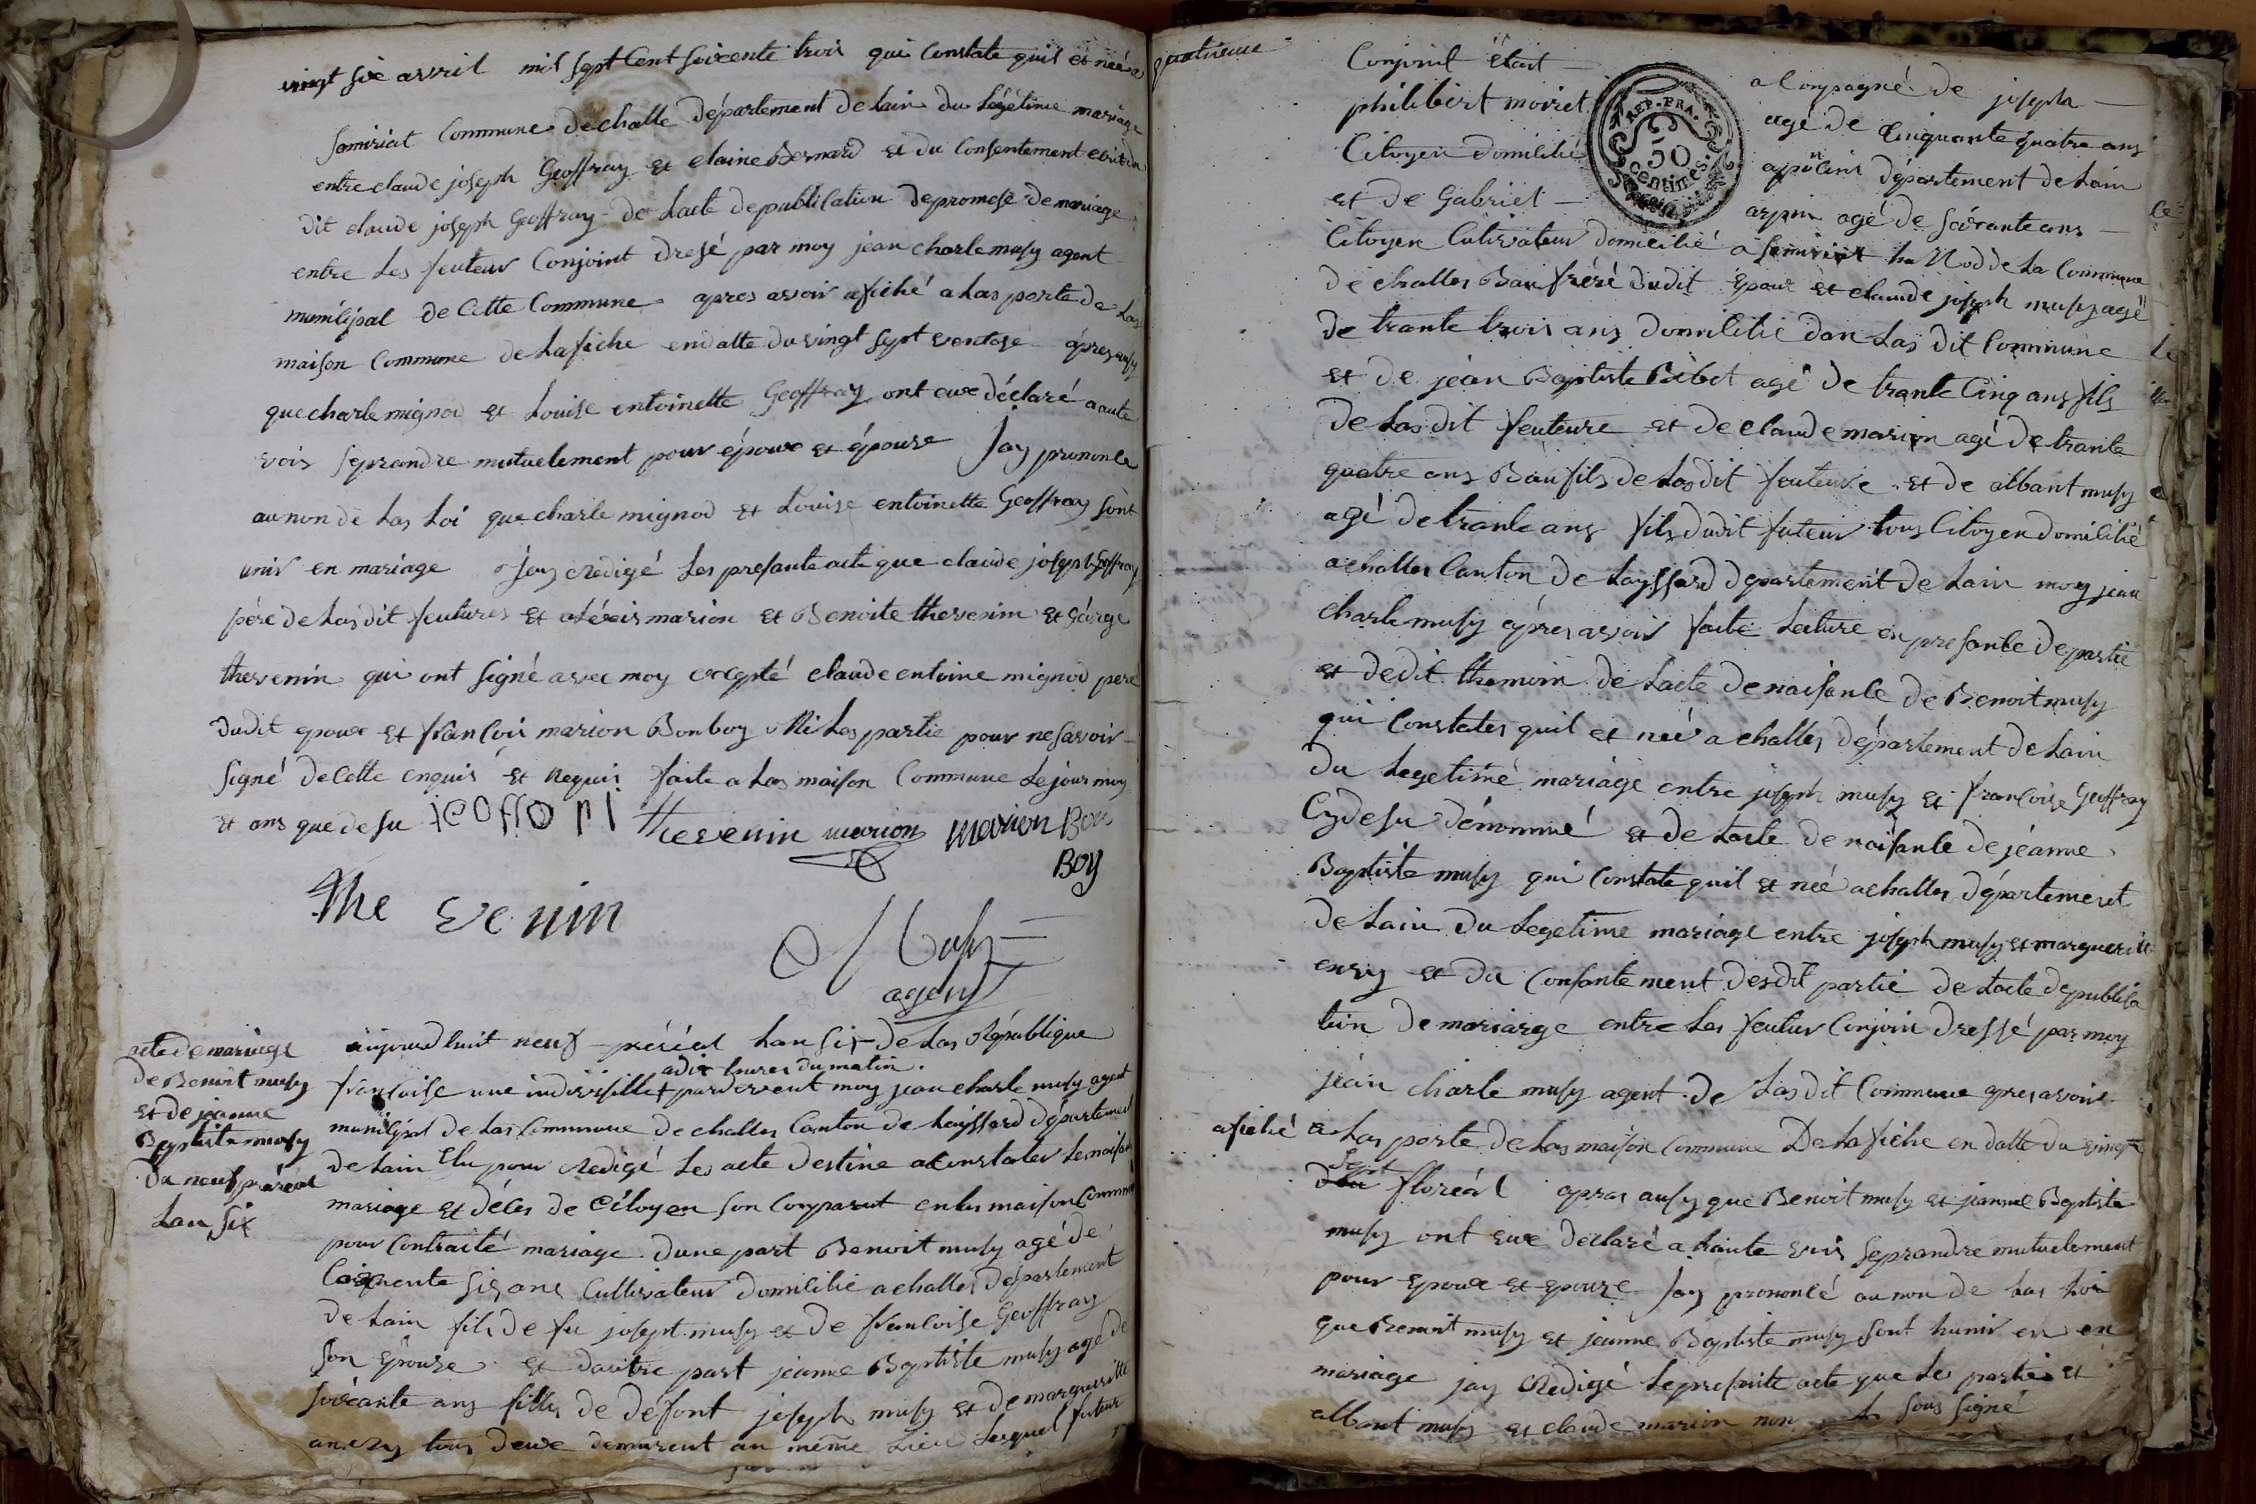 vingt six avril mil sept Cent soixente trois qui Constate quil et née a
samiriat Commune de challe département de Lain du Légétime mariage
entre claude joseph Geoffray et claine Bernard et du Consentement
dit claude joseph Geoffray de Lacte depublication depromese de mariage
entre Les feuteur Conjoint dresé par moy jean charle musy agent
municipal de Cette Commune apres avoir afiché a Las porte de Las
maison Commune de Lafiche en datte du vingt sept ventose apres ausy
que charle mignod et Louise entoinette Geoffray ont eux déclaré a aute
vois seprandre mutuelement pour époux et épouse Jay prononce
au non de Las Loi que charle mignod et Louise entoinette Geoffray sont
unir en mariage Jay Redigé Les presante acte que claude joseph Geoffray
pére de Lasdit feutures et aléxis marion et Benoite thevenin et Géorge
thevenin qui ont signé avec moy excepté claude entoine mignod pere
dudit epoux et françois marion Bonboy Les partie pour nesavoir
signé decette enquis et Requis faite a Las maison Commune Le jour moy
et ans que de su thevenin marion marion Bon
Boy
the venin
Musy
agent
acte de mariage
de Benoit musy
et de jeanne
Baptiste musy
du neuf preréal
Lan six
aujourdhuit neuf preréal Lan six de Las République
adix heures du matin.
françoise une indivisille et pardevent moy jean charle musy agent
municipal de Las Commune de challes Canton de Leyssard département
de Lain Elu pour Redigé Les acte destine a Constater Lenaisance
mariage et déces de Citoyen son Comparut en Las maison Commune
pour Contraité mariage dune part Benoit musy agé de
soixente six ans Cultivateur domicilié a challes département
de Lain fils de fu joseph musy et de francoise Geoffray
son épouse et dautre part jeanne Baptiste musy agé de
soixante ans fille de défont joseph musy et de margueritte
anery tous deux demurent au même Lieu Lequel futeur
quatrieme
Conjoint était acompagné de joseph
philibert moiret agé de Cinquante quatre ans
Citoyen domicilié aponcins département de Lain
et de Gabriel arpin agé de soixante ans
REP. FRA.
50
centimes
Citoyen Cutivateur domicilié a Samiriat ha Nod de La Commune
de challes Bau fréré dudit Epoux et claude joseph musy agé
de trante trois ans domicilié dan Las dit Commune
et de jéan Baptiste Bébet agé de trante Cinq ans fils
de Lasdit feuteure et de claude marion agé de trante
quatre ans Bau fils de Lasdit feuteure et de albant musy
agé de trante ans fils dudit futeur tous Citoyen domicilié
a challes Canton de Layssard département de Lain moy jean
charle musy aprés avoir faite Lecture en presante departie
et dedit themoin de Lacte denaisance de Benoit musy
qui Constates quil et née a challes département de Lain
du Legetimé mariage entre joseph musy et françoise Geoffray
Cydesu dénommé et de Lacte de naisance de jéanne
Baptiste musy qui Constate quil et née achalles département
de Lain du Legetime mariage entre joseph musy et marguerite
enery et du Consantement desdit partie de Lacte depublica
tion de mariarge entre Les feutur Conjoin dressé par moy
jéan charle musy agent de Las dit Commune apres avoir
afiché a Las porte de Las maison Commune De Lafiche en datte du vingt
sept
floréal apras ausy que Benoit musy et jeanne Baptiste
musy ont eux déclaré a haute vois seprandre mutuelement
pour epoux et epouse Jay prononcé au non de Las Loi
que Benoit musy et jeanne Baptiste musy sont hunir en en
mariage jay Redigé Lepresante acte que Les parties et
albant musy et claude marion non sous signé